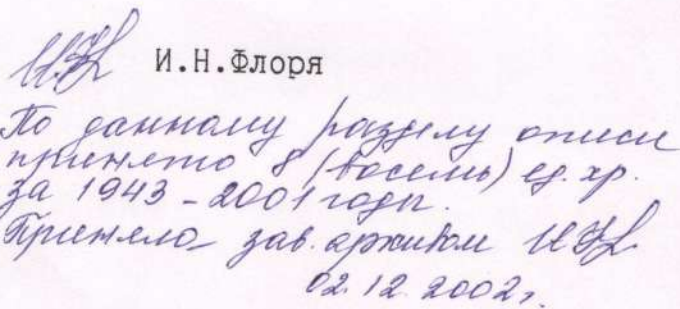 И.Н.Флоря
По данному разделу описи
принято 8 (восемь) ед. хр.
за 1943-2001 годы.
Приняла зав. архивом
02.12.2002г.